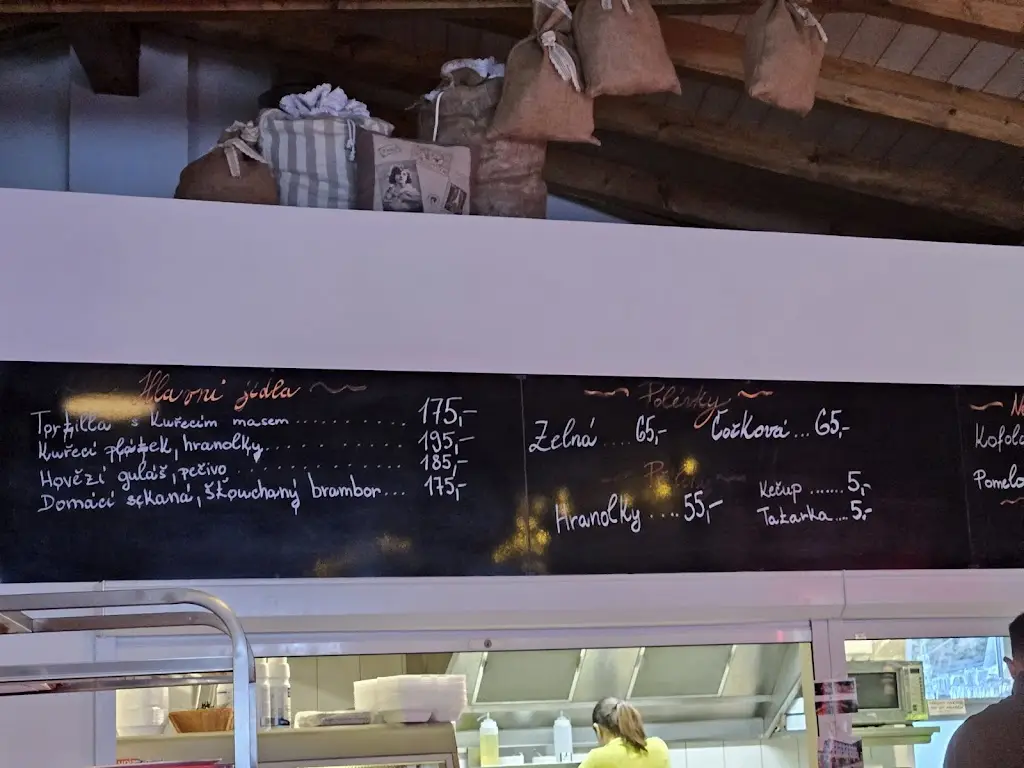 Hlavní jídla
Tortilla s kuřecím masem.......... 175,-
Kuřecí plátek, hranolky.......... 195,-
Hovězí guláš, pečivo.......... 185,-
Domácí sekaná, šťouchaný brambor... 175,-
Polévky
Zelná .... 65,- Čočková... 65,-
Hranolky .... 55,-
Kečup ....... 5,-
Tatarka ... 5,-
Kofola